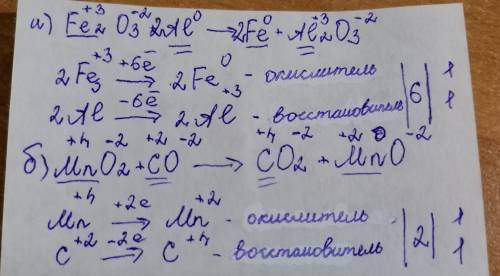 а) Fe₂⁺³ O₃⁻² 2Al⁰ → 2Fe⁰ + Al₂⁺³O₃⁻²
2Fe₃⁺³ +6e̅ → 2Fe⁰ - окислитель | 6 | 1
2Al -6e̅ → 2Al⁺³ - восстановитель 1
б) Mn⁺⁴O₂⁻² + C⁺²O⁻² → C⁺⁴O₂⁻² + Mn⁺²O⁻²
Mn⁺⁴ +2e → Mn⁺² - окислитель | 2 | 1
C⁺² -2e → C⁺⁴ - восстановитель 1